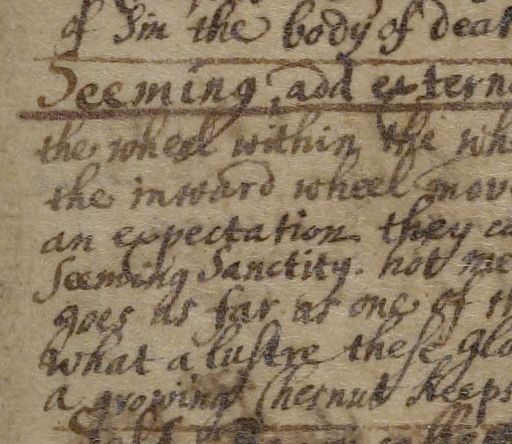 of Sin in the body of deat
Seeming, add externa
the wheel within the whe
the inward wheel mov
an expectation they ca
Seeming Sanctity. not me
goes as far as one of th
what a lustre these glo
a growing Chesnut keeps